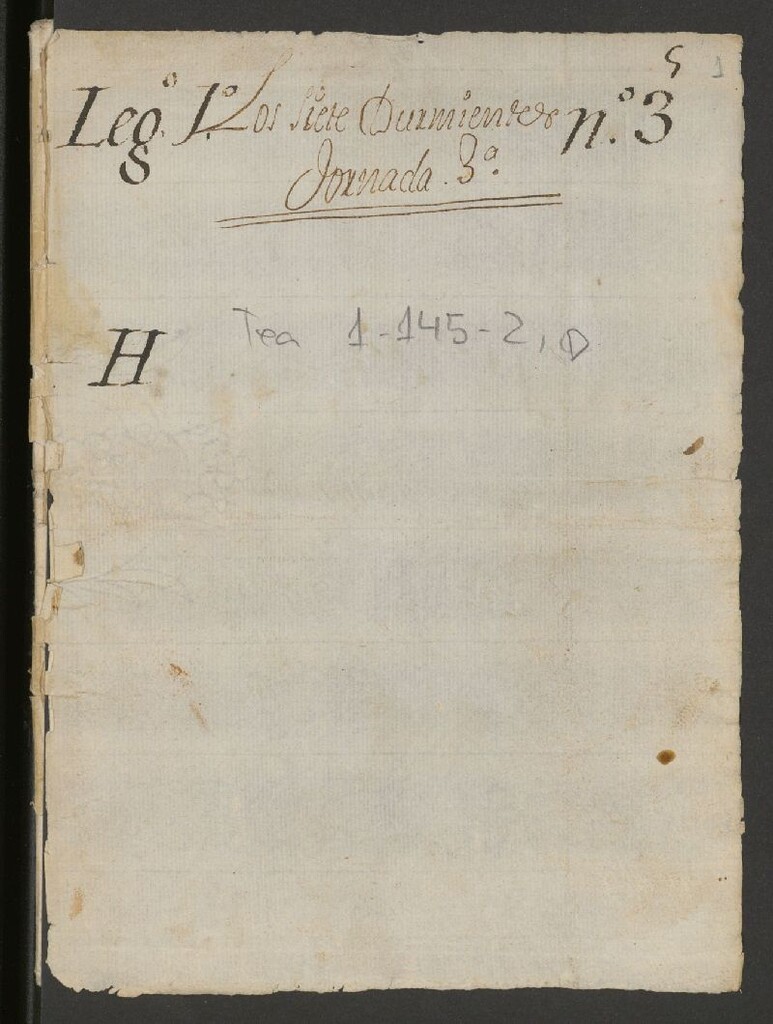 5 1
Leg.º 1.º Los siete Durmientes n.º 3
Jornada. 3.ª
H Tea 1-145-2, D